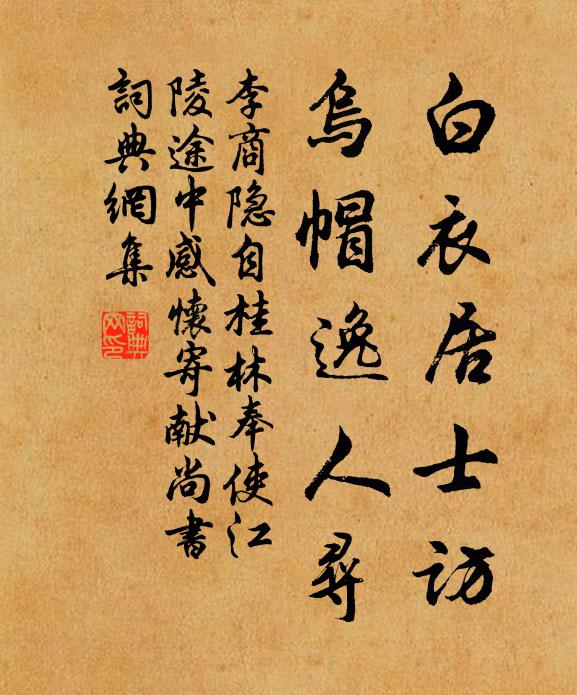 白衣居士訪
烏帽逸人尋
李商隐自桂林奉使江
陵途中感懷寄献尚書
詞典網集
詞典
网印